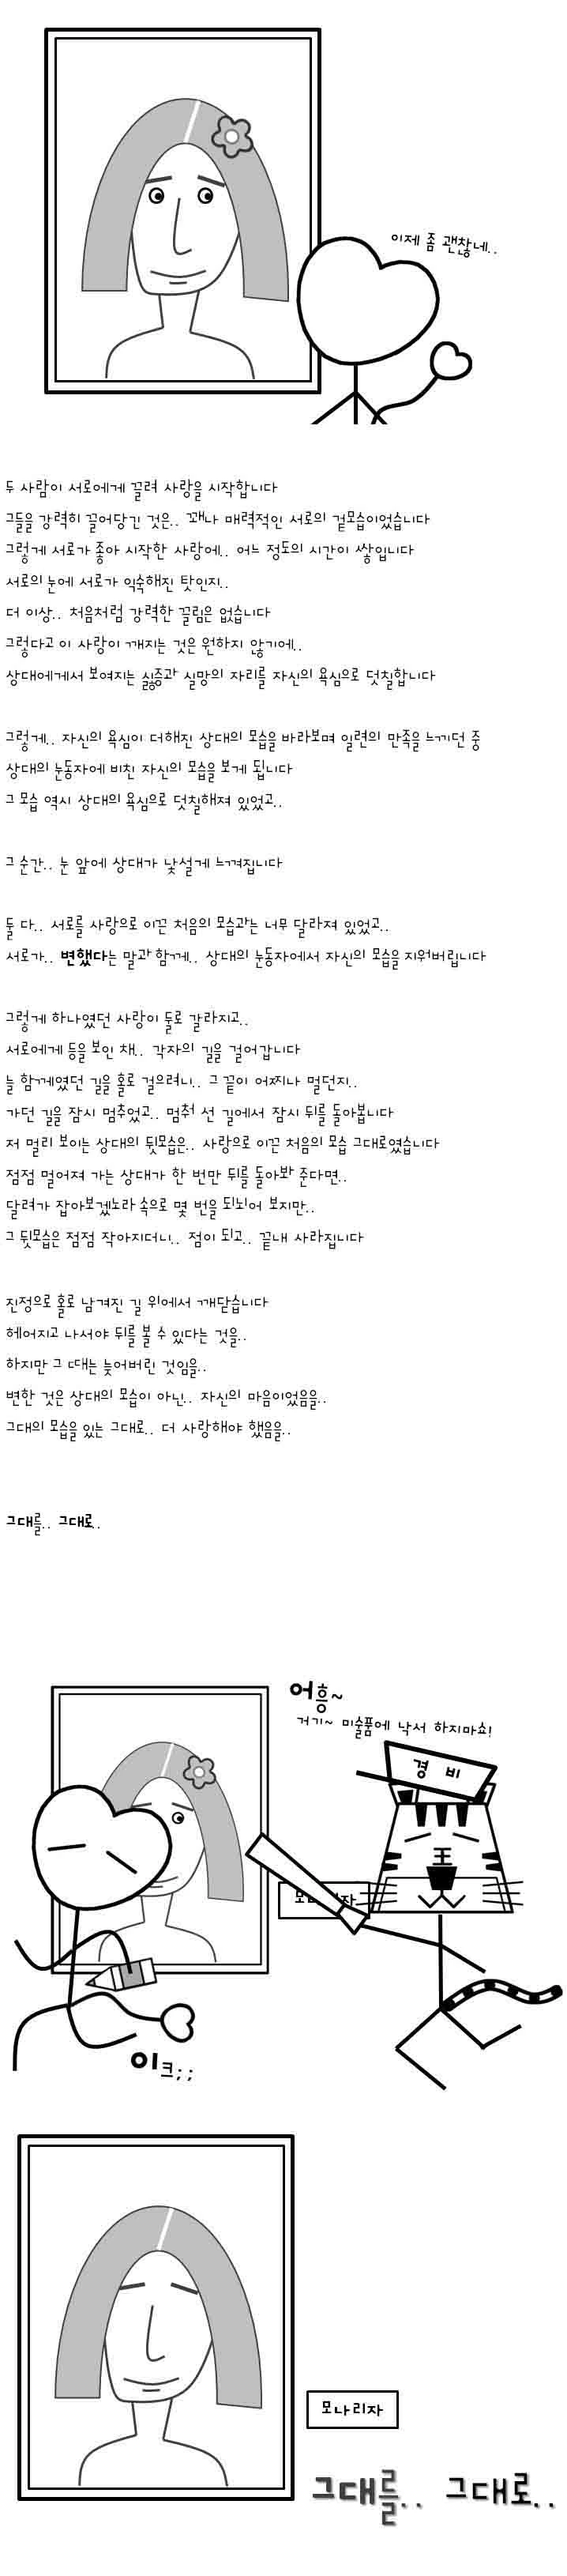 이제 좀 괜찮네..
두 사람이 서로에게 끌려 사랑을 시작합니다
그들을 강력히 끌어당긴 것은.. 꽤나 매력적인 서로의 겉모습이었습니다
그렇게 서로가 좋아 시작한 사랑에.. 어느 정도의 시간이 쌓입니다
서로의 눈에 서로가 익숙해진 탓인지..
더 이상.. 처음처럼 강력한 끌림은 없습니다
그렇다고 이 사랑이 깨지는 것은 원하지 않기에..
상대에게서 보여지는 싫증과 실망의 자리를 자신의 욕심으로 덧칠합니다
그렇게.. 자신의 욕심이 더해진 상대의 모습을 바라보며 일련의 만족을 느끼던 중
상대의 눈동자에 비친 자신의 모습을 보게 됩니다
그 모습 역시 상대의 욕심으로 덧칠해져 있었고..
그 순간.. 눈 앞에 상대가 낯설게 느껴집니다
둘 다.. 서로를 사랑으로 이끈 처음의 모습과는 너무 달라져 있었고..
서로가.. 변했다는 말과 함께.. 상대의 눈동자에서 자신의 모습을 지워버립니다
그렇게 하나였던 사랑이 둘로 갈라지고..
서로에게 등을 보인 채.. 각자의 길을 걸어갑니다
늘 함께였던 길을 홀로 걸으려니.. 그 끝이 어찌나 멀던지..
가던 길을 잠시 멈추었고.. 멈춰 선 길에서 잠시 뒤를 돌아봅니다
저 멀리 보이는 상대의 뒷모습은.. 사랑으로 이끈 처음의 모습 그대로였습니다
점점 멀어져 가는 상대가 한 번만 뒤를 돌아봐 준다면..
달려가 잡아보겠노라 속으로 몇 번을 되뇌어 보지만..
그 뒷모습은 점점 작아지더니.. 점이 되고.. 끝내 사라집니다
진정으로 홀로 남겨진 길 위에서 깨닫습니다
헤어지고 나서야 뒤를 볼 수 있다는 것을..
하지만 그 때는 늦어버린 것임을..
변한 것은 상대의 모습이 아닌.. 자신의 마음이었음을..
그대의 모습을 있는 그대로.. 더 사랑해야 했음을..
그대를.. 그대로..
어흥~
거기~ 미술품에 낙서 하지마쇼!
경 비
자
이크;;
모나리자
그대를.. 그대로..